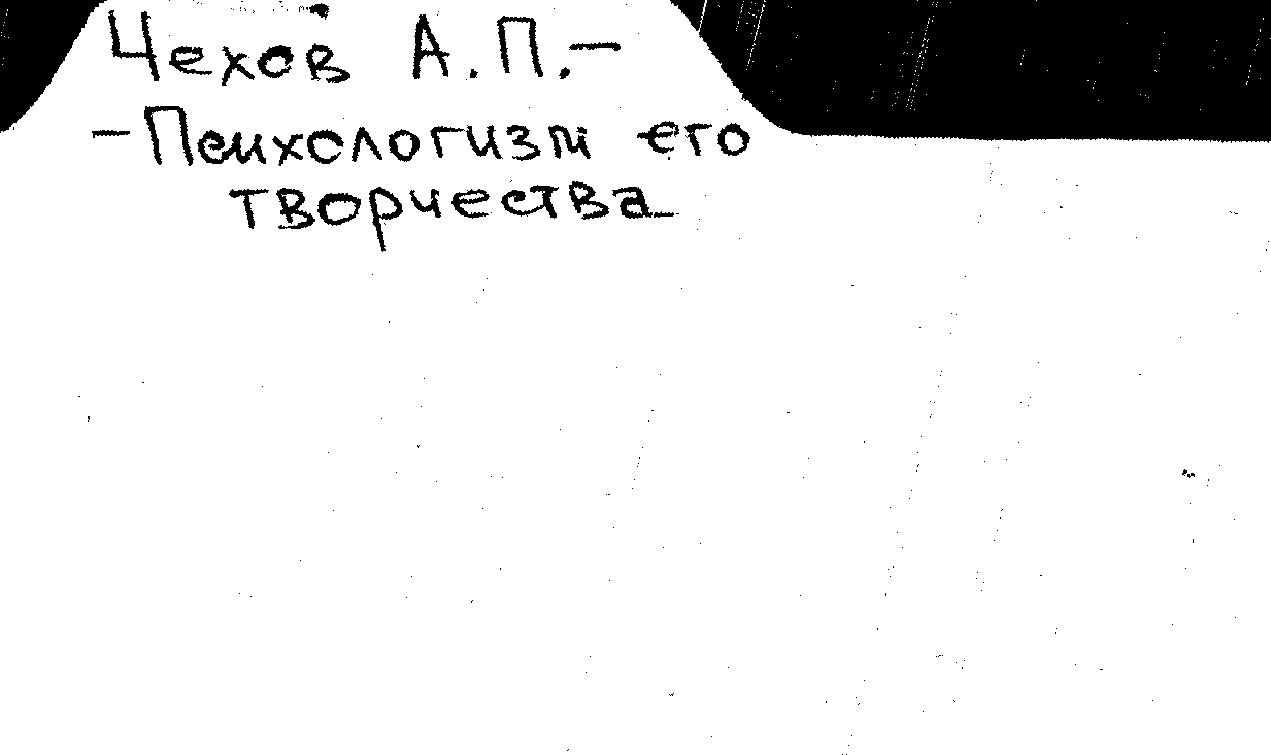 Чехов А.П.-
-Психологизм его
творчества